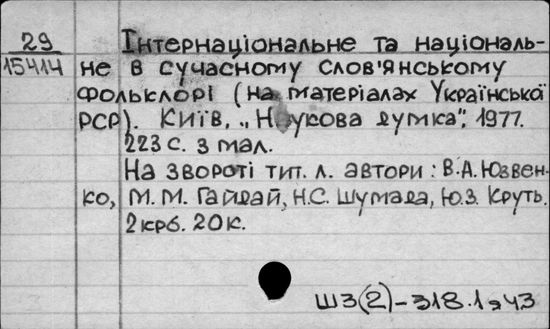 29
15414
Інтернаціональне та національ-
не в сучасному слов'янському
фольклорі (на матеріалах Української
РСР). Київ, „Наукова думка", 1977.
223 с. з мал.
На звороті тит. л. автори: В.А. Юзвен-
ко, М. М. Гайдай, Н.С. Шумада, Ю.З. Круть.
2 крб. 20 к.
Ш3(2)-318.1я43